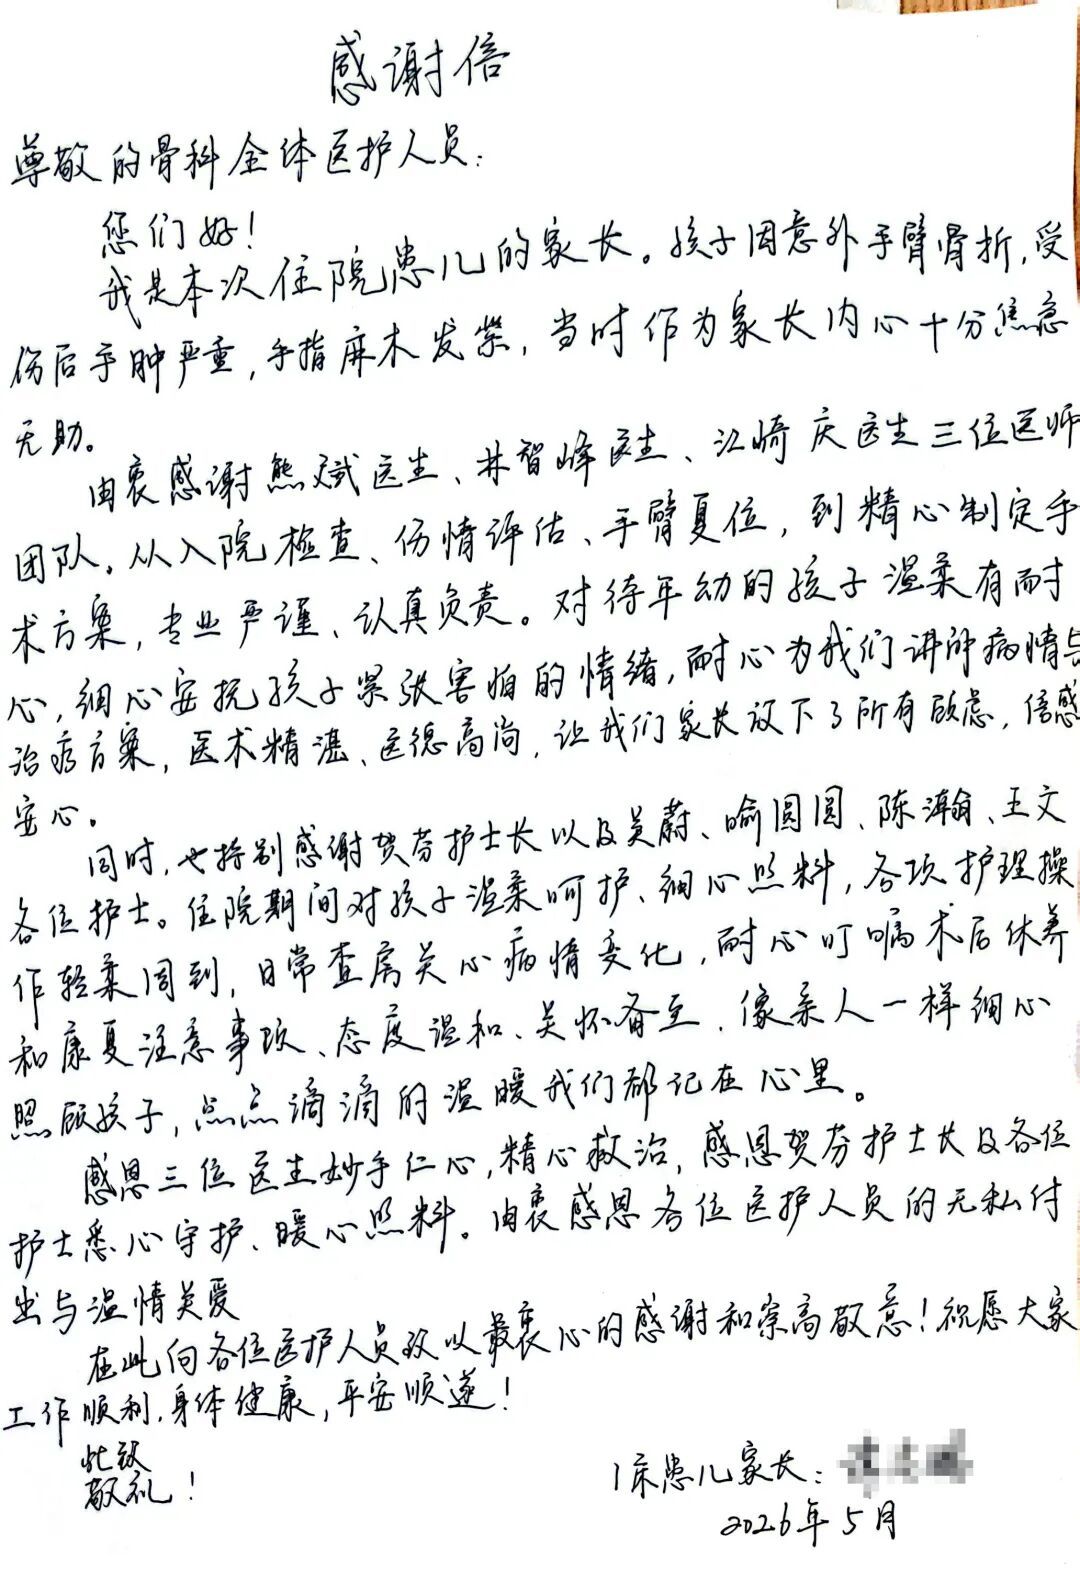 感谢信
尊敬的骨科全体医护人员:
您们好!
我是本次住院患儿的家长。孩子因意外手臂骨折,受
伤后手肿严重,手指麻木发紫,当时作为家长内心十分焦急
无助。
由衷感谢熊斌医生、林智峰医生、江崎庆医生三位医师
团队。从入院检查、伤情评估、手臂复位,到精心制定手
术方案,专业严谨、认真负责。对待年幼的孩子温柔有耐
心,细心安抚孩子紧张害怕的情绪,耐心为我们讲解病情与
治疗方案,医术精湛、医德高尚,让我们家长放下了所有顾虑,倍感
安心。
同时,也特别感谢贺芬护士长以及吴蔚、喻圆圆、陈瀚、王文
各位护士。住院期间对孩子温柔呵护、细心照料,各项护理操
作轻柔周到,日常查房关心病情变化,耐心叮嘱术后休养
和康复注意事项、态度温和、关怀备至,像亲人一样细心
照顾孩子,点点滴滴的温暖我们都记在心里。
感恩三位医生妙手仁心,精心救治,感恩贺芬护士长及各位
护士悉心守护、暖心照料。由衷感恩各位医护人员的无私付
出与温情关爱
在此向各位医护人员致以最衷心的感谢和崇高敬意!祝愿大家
工作顺利,身体健康,平安顺遂!
此致
敬礼!
1床患儿家长:
2026年5月